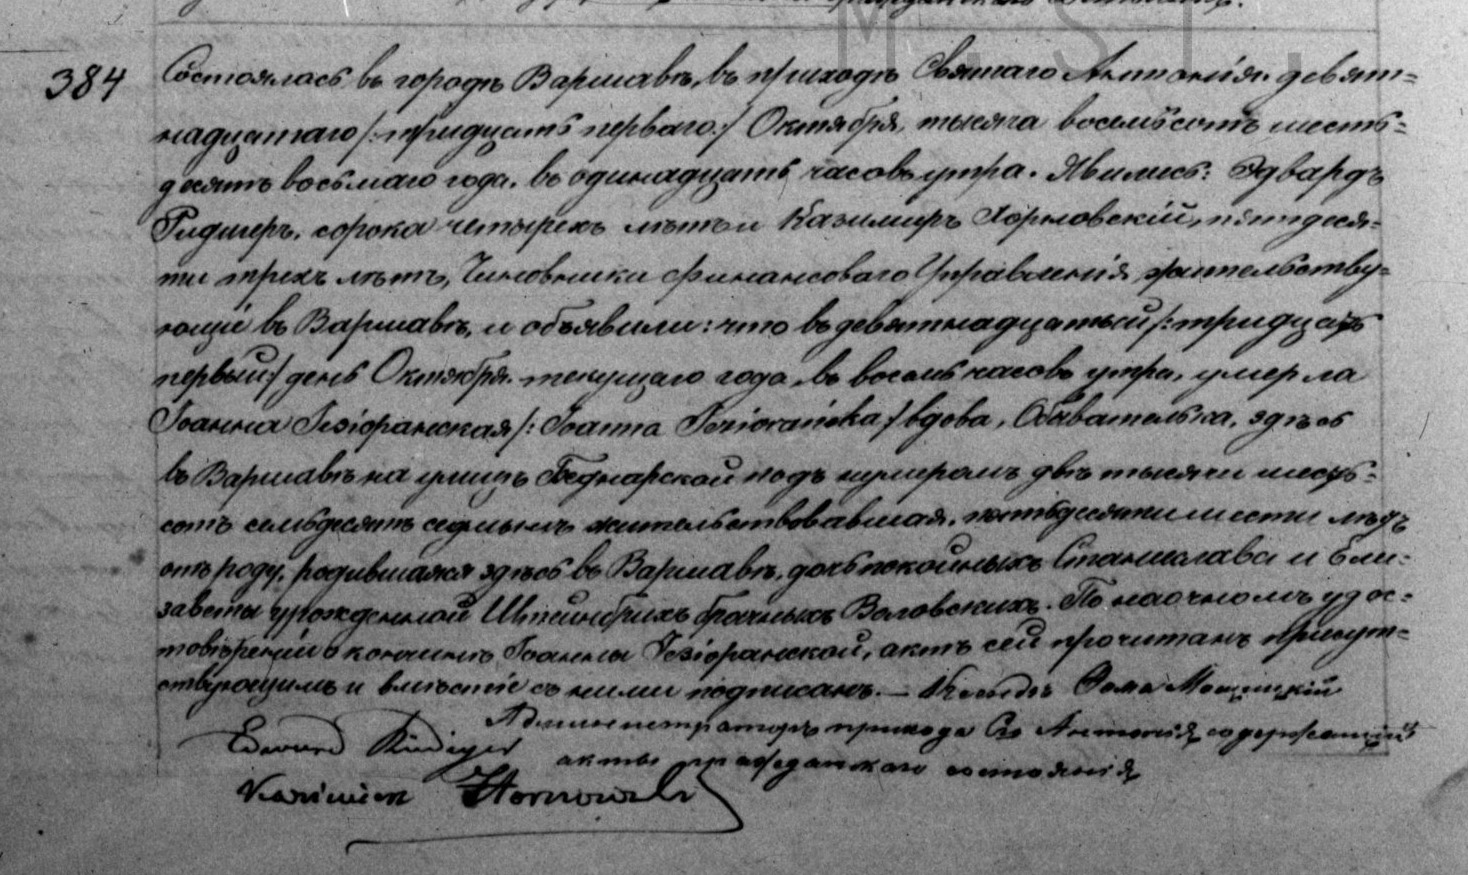 гражданского
M. S T.
384
Состоялась въ городѣ Варшавѣ, въ приходѣ Святаго Антонія, девят=
надцатаго /:тридцать перваго:/ Октября, тысяча восемьсотъ шесть=
десятъ восьмаго года, въ одинадцать часовъ утра. Явились: Эдвардъ
Ридигеръ, сорока четырехъ лѣтъ и Казимиръ Хорновскій, пятидеся=
ти трехъ лѣтъ, Чиновники финансоваго Управленія, жительству=
ющіе въ Варшавѣ, и объявили: что въ девятнадцатый /:тридцать
первый:/ день Октября текущаго года, въ восемь часовъ утра, умерла
Іоанна Іезіоранская /: Joanna Jezioranska :/ вдова, Обывателька, здѣсь
въ Варшавѣ на улицѣ Беднарской подъ нумеромъ двѣ тысячи шесть=
сотъ семьдесятъ седмымъ жительствовавшая, пятьдесяти шести лѣтъ
отъ роду, родившаяся здѣсь въ Варшавѣ, дочь покойныхъ Станислава и Ели=
заветы урожденной Штейнбрихъ брачныхъ Воловскихъ. По наочномъ удос=
товѣреніи о кончинѣ Іоанны Іезіоранской, актъ сей прочитанъ присут=
ствующимъ и вмѣстѣ съ ними подписанъ. — Ксендзъ Ѳома Мощицкій
Администраторъ прихода Св. Антонія, содержащій
акты гражданскаго состоянія
Edward Rüdiger
Kazimierz Hornowski